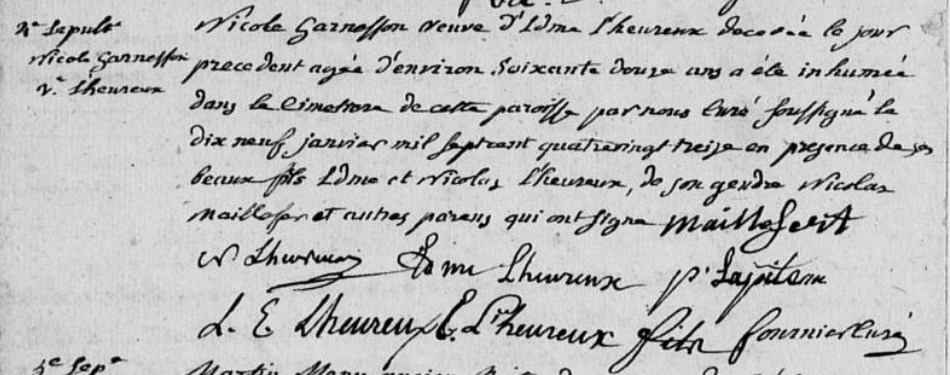 4e Sepult
Nicole Garnesson
v. Lheureux
Nicole Garnesson veuve d'Edme l'heureux decedée le jour
precedent agée d'environ Soixante douze ans a été inhumée
dans le Cimetiere de cette paroisse par nous Curé soussigné le
dix neuf janvier mil sept cent quatrevingt treize en presence de ses
beaux fils Edme et Nicolas l'heureux, de son gendre Nicolas
Maillefer et autres parens qui ont signé Maillefert
N Lheureux Edme Lheureux p.
L. E. Lheureux E. L'heureux fils fournier Curé
5e Sep
Martin